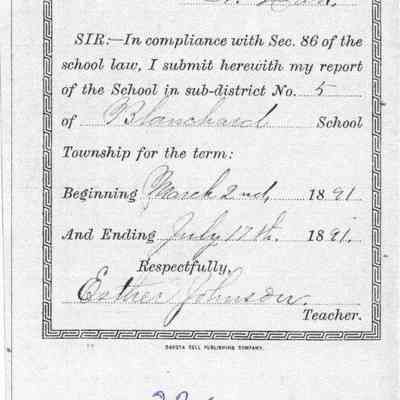 SIR:—In compliance with Sec. 86 of the
school law, I submit herewith my report
of the School in sub-district No. 5
of Blanchard School
Township for the term:
Beginning March 2nd, 1891
And Ending July 17th. 1891.
Respectfully,
Esther Johnson.
Teacher.
DAKOTA BELL PUBLISHING COMPANY.